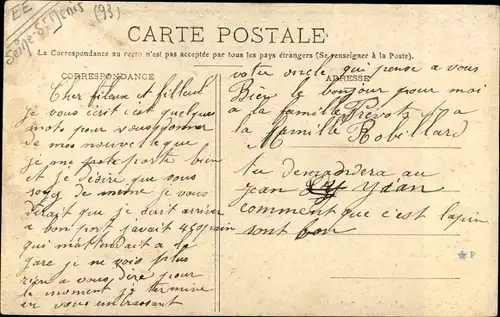 EE
Seine St Denis (93)
CARTE POSTALE
La Correspondance au recto n'est pas acceptée par tous les pays étrangers (Se renseigner à la Poste).
CORRESPONDANCE
Cher filleul et filleul
je vous écrit c'est quelques
mots pour vous donner
de mes nouvelle que
je me porte bien
et je désire que vous
soyez de meme je vous
dirait que je suit arriver
a bon port javait 4 copain
qui mattendait a la
gare je ne vois plus
rien a vous dire pour
le moment je termine
en vous embrassant
votre oncle qui pense a vous
ADRESSE
Bien le bonjour pour moi
a la famille Prevots a
la famille
Robillard
tu demandera au
jean
comment que c'est lapin
sont bon
F